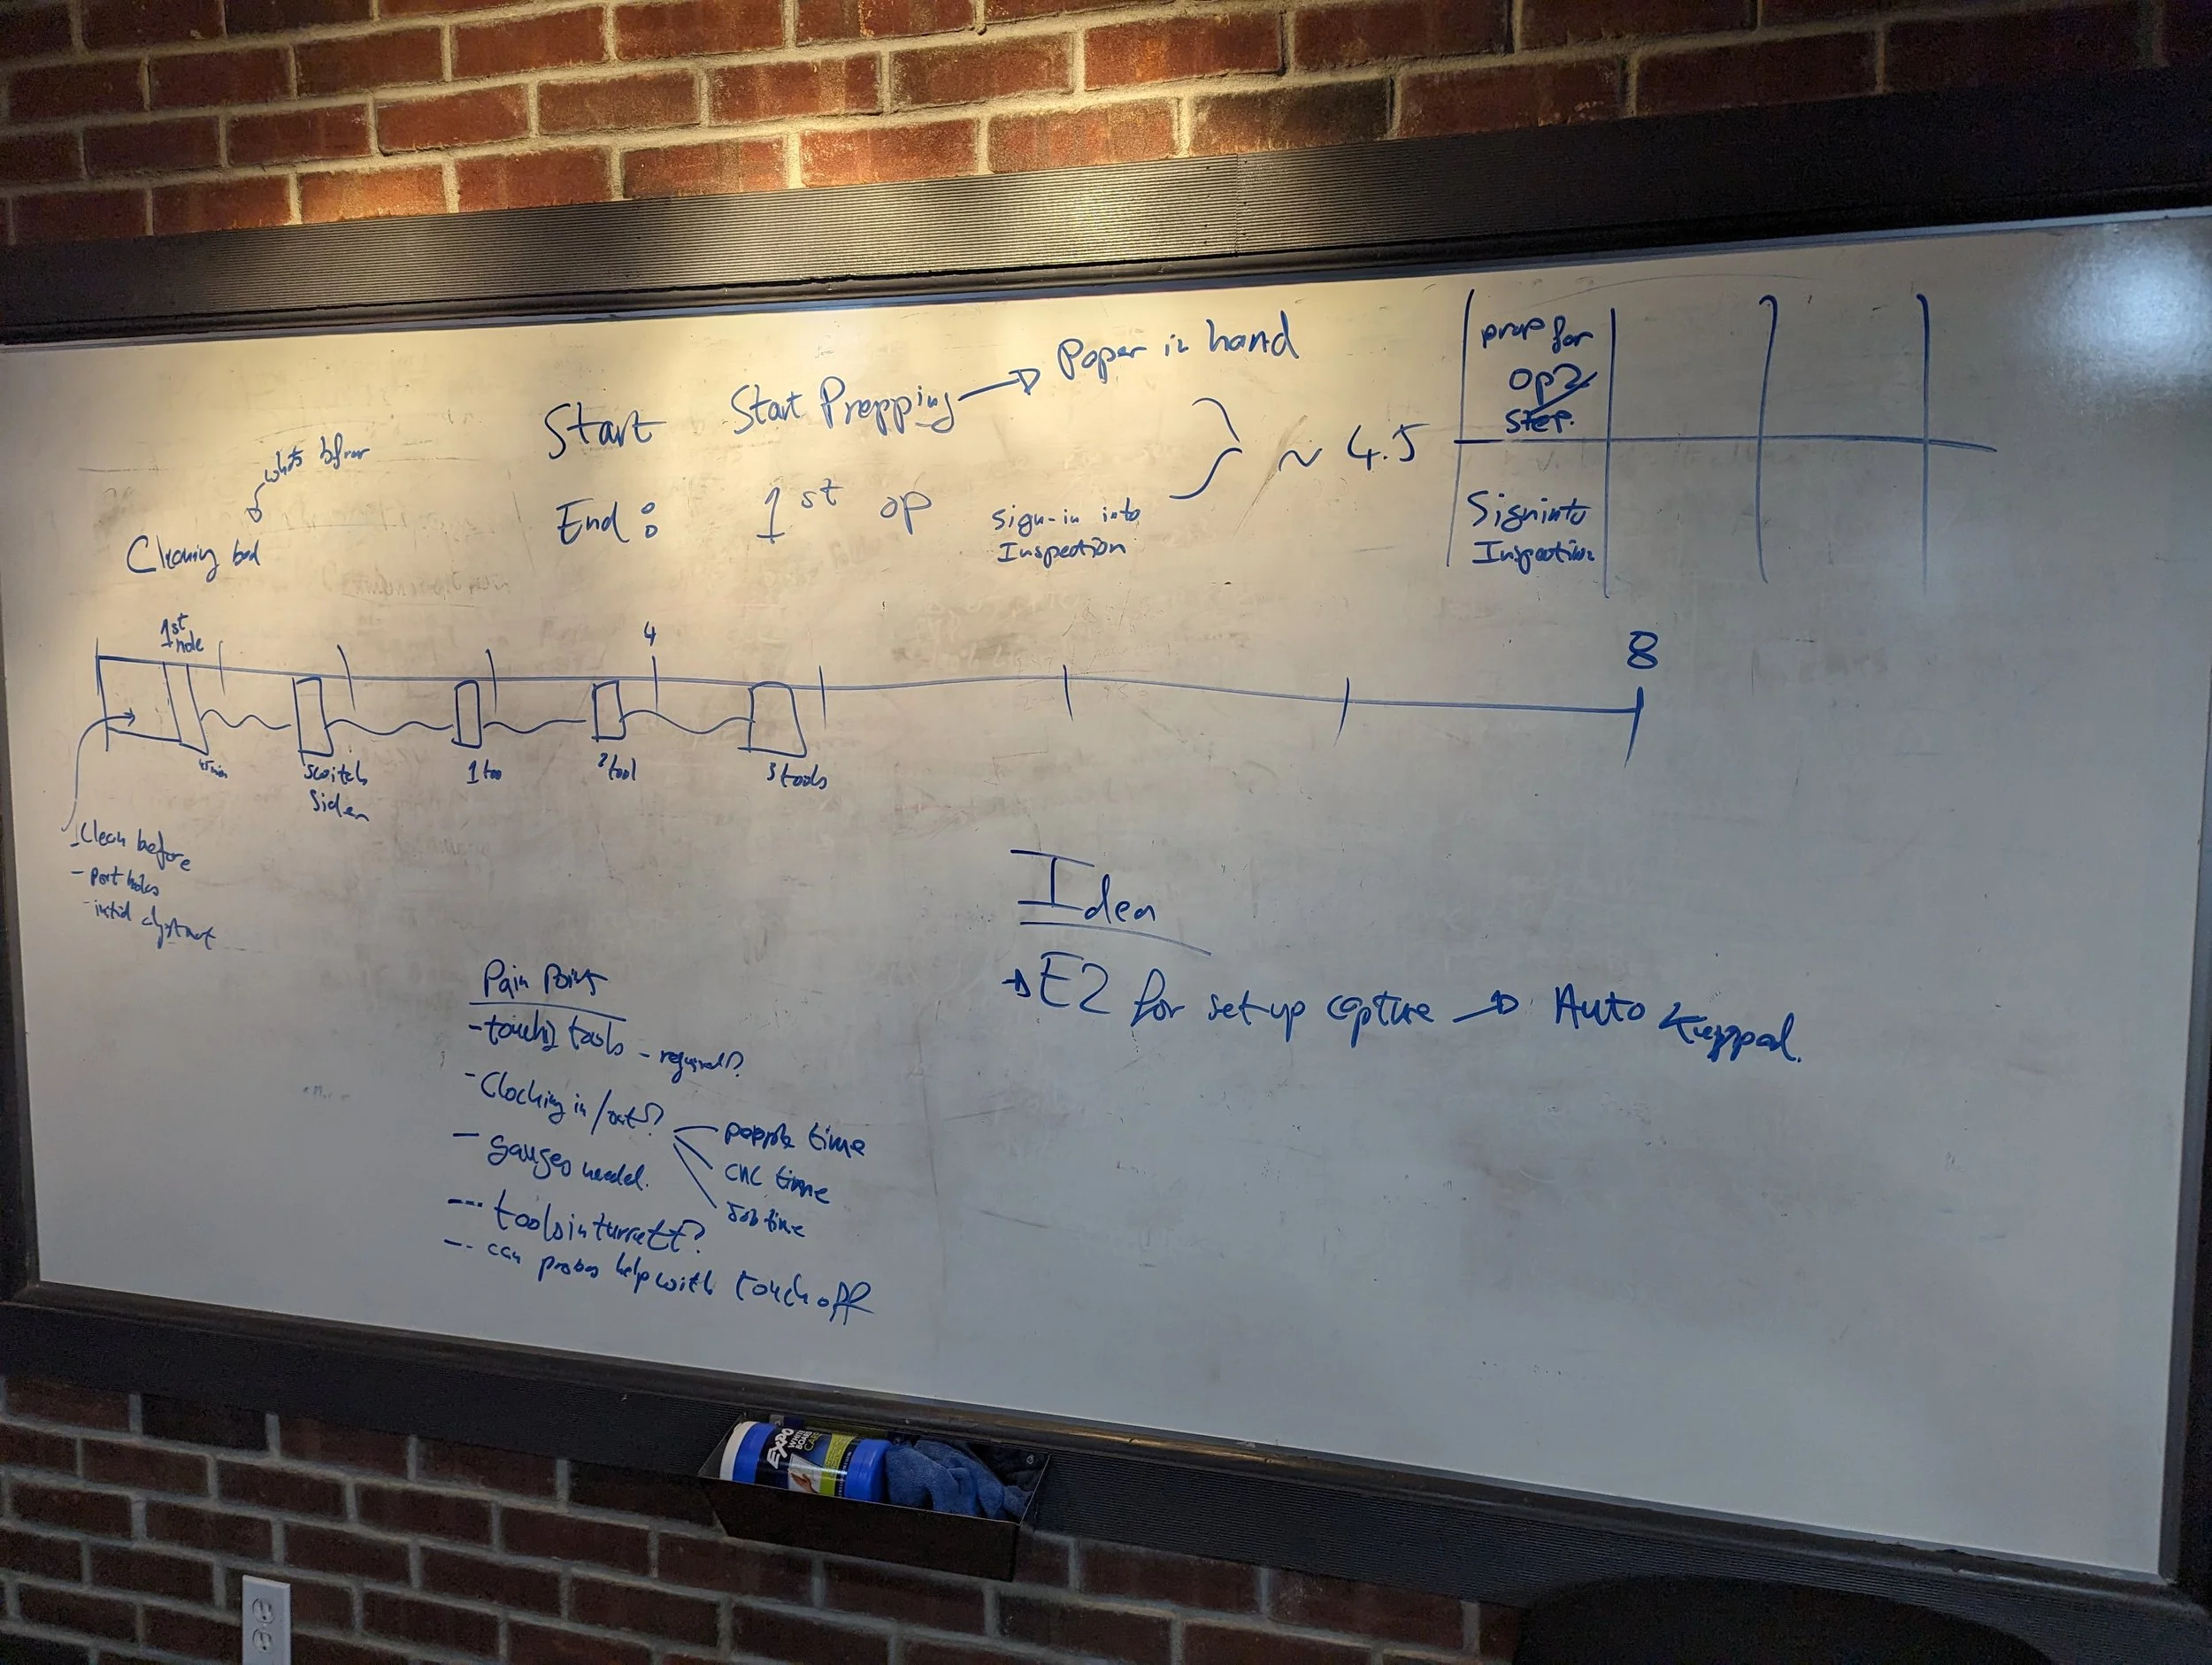 Start Start Prepping → Paper in hand
End: 1st op Sign-in into
Inspection
~ 4.5
prep for
Op2
Step.
Sign into
Inspection
Cleaning bed
1st
hole
4
8
45min
Switch
Sides
1 too
2 tool
3 tools
- Clean before
- Port holes
Pain Point
- touching tools - required?
- Clocking in/out?
people time
CNC time
Job time
- gauges needed.
--- tools in turrett?
-- can probes help with touch off
Idea
→ E2 for set-up capture → Auto
EXPO
WHITE
BOARD
CARE